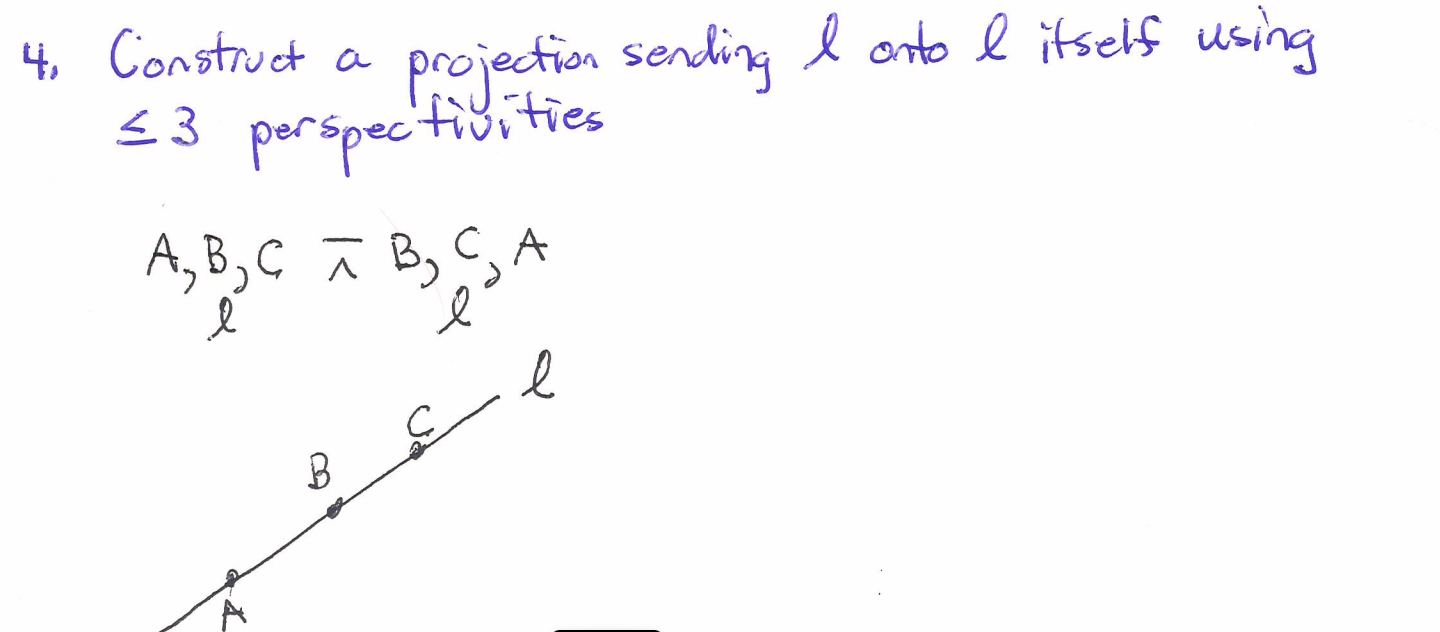 4. Construct a projection sending l onto l itself using
≤ 3 perspectivities
A, B, C ⊼ B, C, A
l l
l
C
B
A